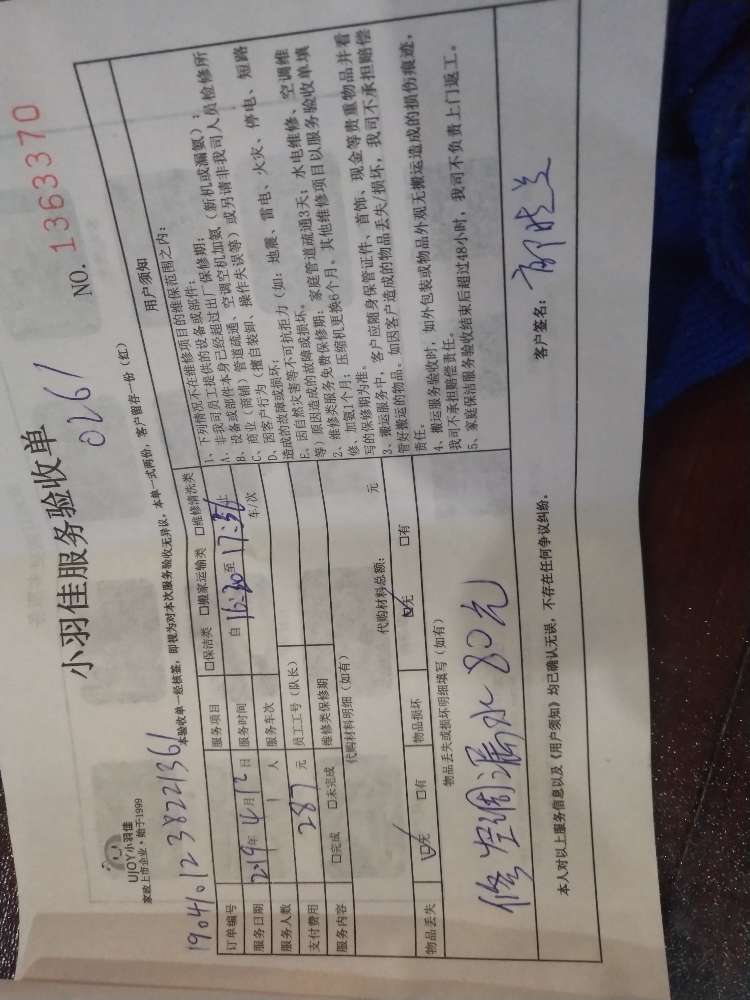 小羽佳服务验收单
NO. 1363370
0261
UJOY小羽佳
家政上市企业·始于1999
本验收单一经核签，即视为对本次服务验收无异议，本单一式两份，客户留存一份（红）
订单编号
服务项目 □保洁类 □搬家运输类 □维修清洗类
服务日期 2019年4月12日 服务时间 自16:30至17:36止
服务人数 1人 服务车次 车/次
支付费用 287元 员工工号（队长）
服务内容 □完成 □未完成 维修类保修期
代购材料明细（如有）
代购材料总额： 元
物品丢失 ☑无 □有 物品损坏 ☑无 □有
物品丢失或损坏明细填写（如有）
修空调漏水80元
用户须知
1、下列情况不在维修项目的维保范围之内：
A、非我司员工提供的设备或部件；
B、设备或部件本身已经超过出厂保修期；
C、商业（商铺）管道疏通、空调空机加氨（新机或漏氨）；
D、因客户行为（擅自装卸、操作失误等）或另请非我司人员检修所
造成的故障或损坏；
E、因自然灾害等不可抗拒力（如：地震、雷电、火灾、停电、短路
等）原因造成的故障或损坏。
2、维修类服务免费保修期：家庭管道疏通3天；水电维修、空调维
修、加氨1个月；压缩机更换6个月。其他维修项目以服务验收单填
写的保修期为准。
3、搬运服务中，客户应随身保管证件、首饰、现金等贵重物品并看
管好搬运的物品。如因客户造成的物品丢失/损坏，我司不承担赔偿
责任。
4、搬运服务验收时，如外包装或物品外观无搬运造成的损伤痕迹，
我司不承担赔偿责任。
5、家庭保洁服务验收结束后超过48小时，我司不负责上门返工。
本人对以上服务信息以及《用户须知》均已确认无误，不存在任何争议纠纷。
客户签名：